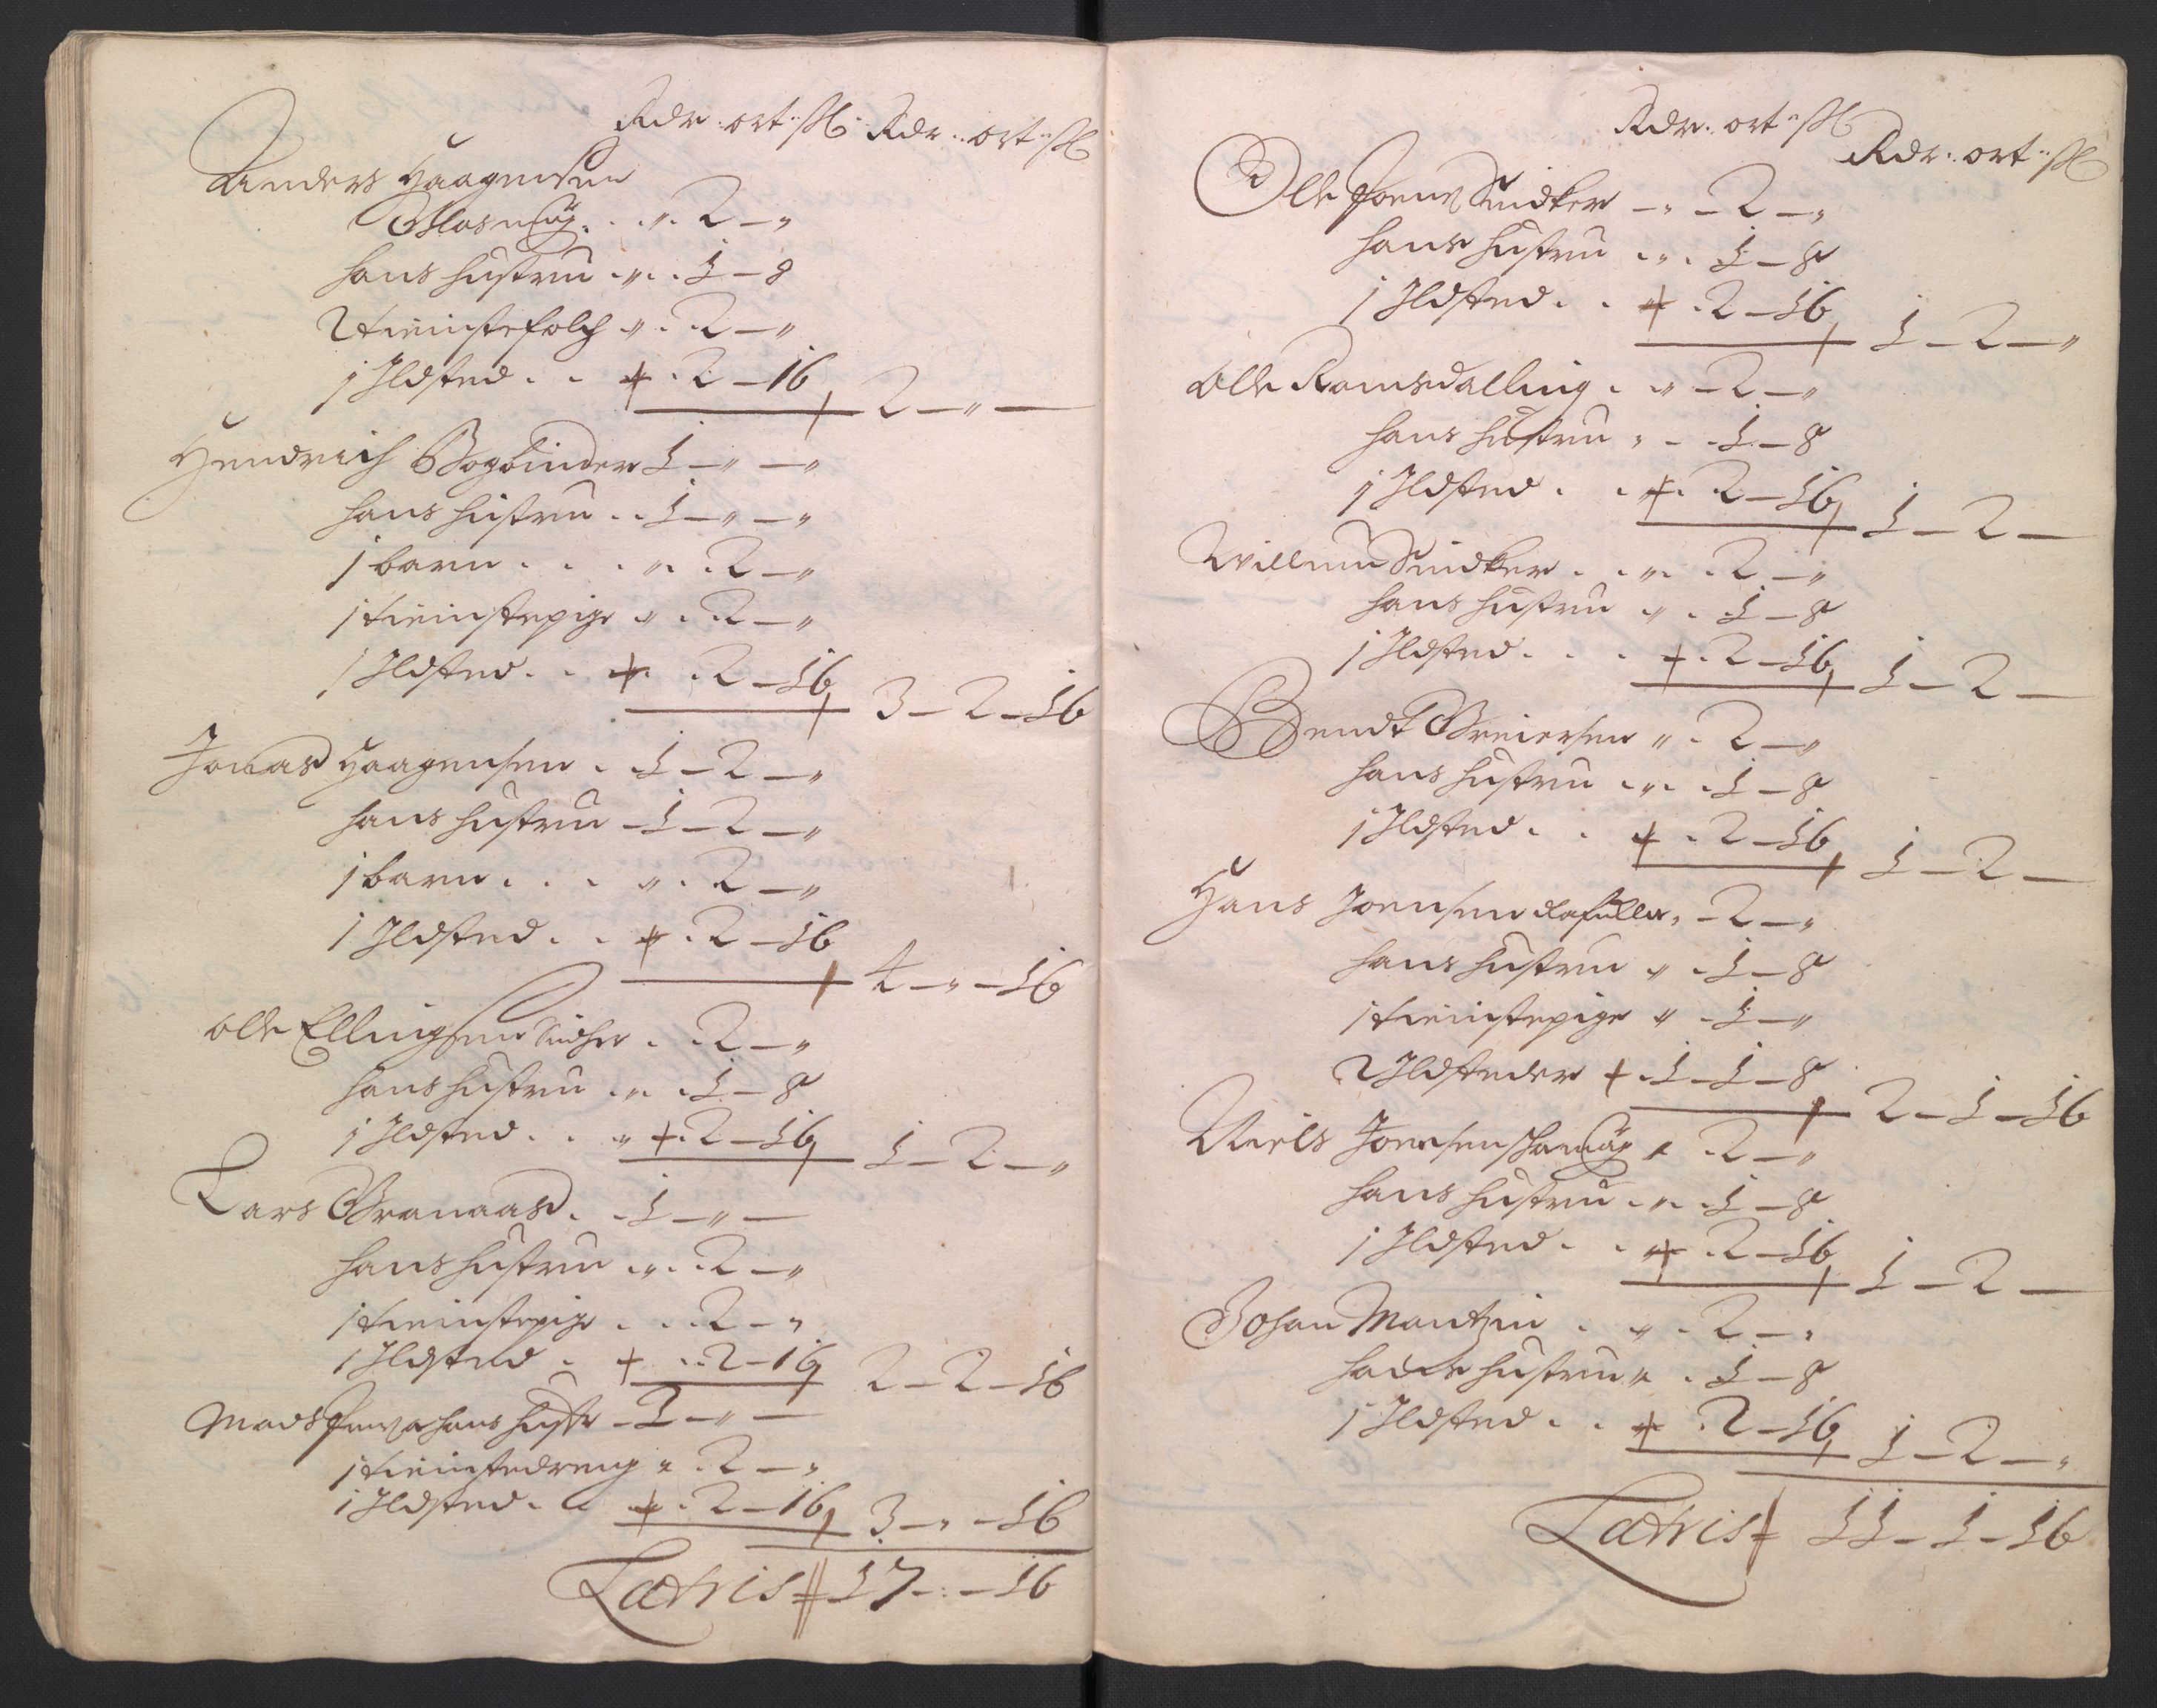 Rdr: ort: ß Rdr: ort: ß
Anders Haagensen
Glasmag. . . „ . 2 — „
hans hustru . „ . . 1 — 8
2 tienistefolch „ . 2 — „
1 Ildsted . . „ . 2 — 16
2 — „ —
Hendrich Bogbinder 1 — „ — „
hans hustru . . 1 — „ — „
1 barn . . . „ . . 2 — „
1 tienistepige „ . . 2 — „
1 Ildsted . . „ . . 2 — 16
3 — 2 — 16
Jonas Haagensen . . 1 — 2 — „
hans hustru — 1 — 2 — „
1 barn . . . „ . 2 — „
1 Ildsted . . „ . 2 — 16
4 — „ — 16
Olle Ellingsen . . 2 — „
hans hustru . „ . . 1 — 8
1 Ildsted . . „ . 2 — 16
1 — 2 — „
Lars Granaas . . 1 — „ —
hans hustru . „ . . 2 — „
1 tienistepige . . . 2 — „
1 Ildsted . . . 2 — 16
2 — 2 — 16
Mads hans hustr — 2 — „ —
1 tienistedreng „ . 2 — „
1 Ildsted . „ . 2 — 16
3 — „ — 16
Latris 17 — : — 16
Rdr: ort: ß
Rdr: ort: ß
Olle Joens Snidker — „ — 2 — „
hans hustru . „ . 1 — 8
1 Ildsted . . „ . 2 — 16
1 — 2 — „
Olle Romsdalling . „ — 2 — „
hans hustru „ — . 1 — 8
1 Ildsted . . „ . 2 — 16
1 — 2 —
Willum Snidker . . „ . . 2 — „
hans hustru „ . 1 — 8
1 Ildsted . . . . 2 — 16
1 — 2 —
Bendt Greiersen „ . 2 — „
hans hustru . „ . . 1 — 8
1 Ildsted . . „ . 2 — 16
1 — 2 —
Hans Joensen „ — 2 — „
hans hustru „ . 1 — 8
1 tienistepige „ . 1 — „
2 Ildsteder . 1 — 1 — 8
2 — 1 — 16
Niels Joensen „ . 2 — „
hans hustru . „ . . 1 — 8
1 Ildsted . . „ . 2 — 16
1 — 2 —
Johan Mantzin . „ . 2 — „
hans hustru „ . 1 — 8
1 Ildsted . . „ . 2 — 16
1 — 2 — „
Latris 11 — 1 — 16